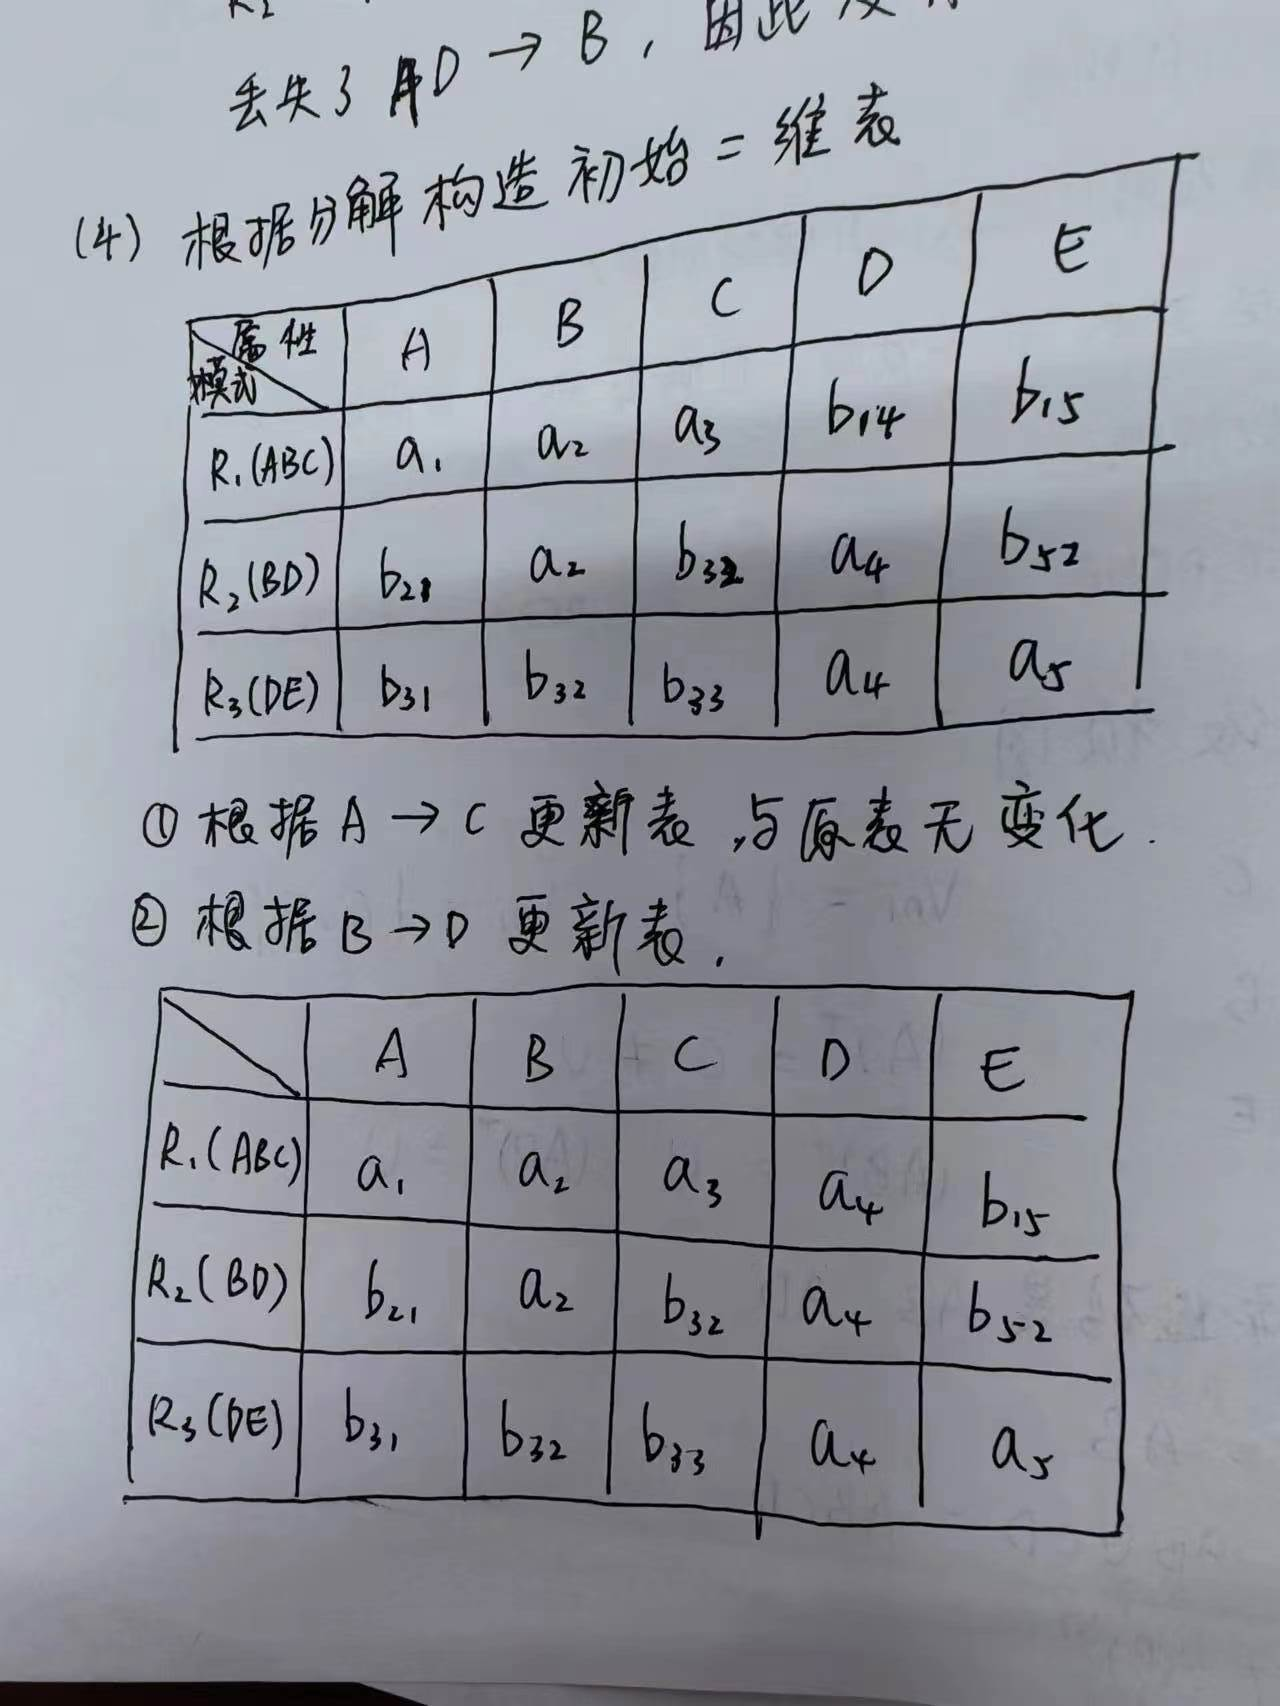 丢失了 AD → B , 因此没有
(4) 根据分解构造初始二维表
属性 模式 A B C D E
R₁(ABC) a₁ a₂ a₃ b₁₄ b₁₅
R₂(BD) b₂₁ a₂ b₃₂ a₄ b₅₂
R₃(DE) b₃₁ b₃₂ b₃₃ a₄ a₅
① 根据 A → C 更新表 ,与原表无变化.
② 根据 B → D 更新表.
A B C D E
R₁(ABC) a₁ a₂ a₃ a₄ b₁₅
R₂(BD) b₂₁ a₂ b₃₂ a₄ b₅₂
R₃(DE) b₃₁ b₃₂ b₃₃ a₄ a₅